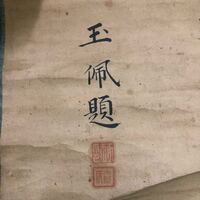 玉佩題